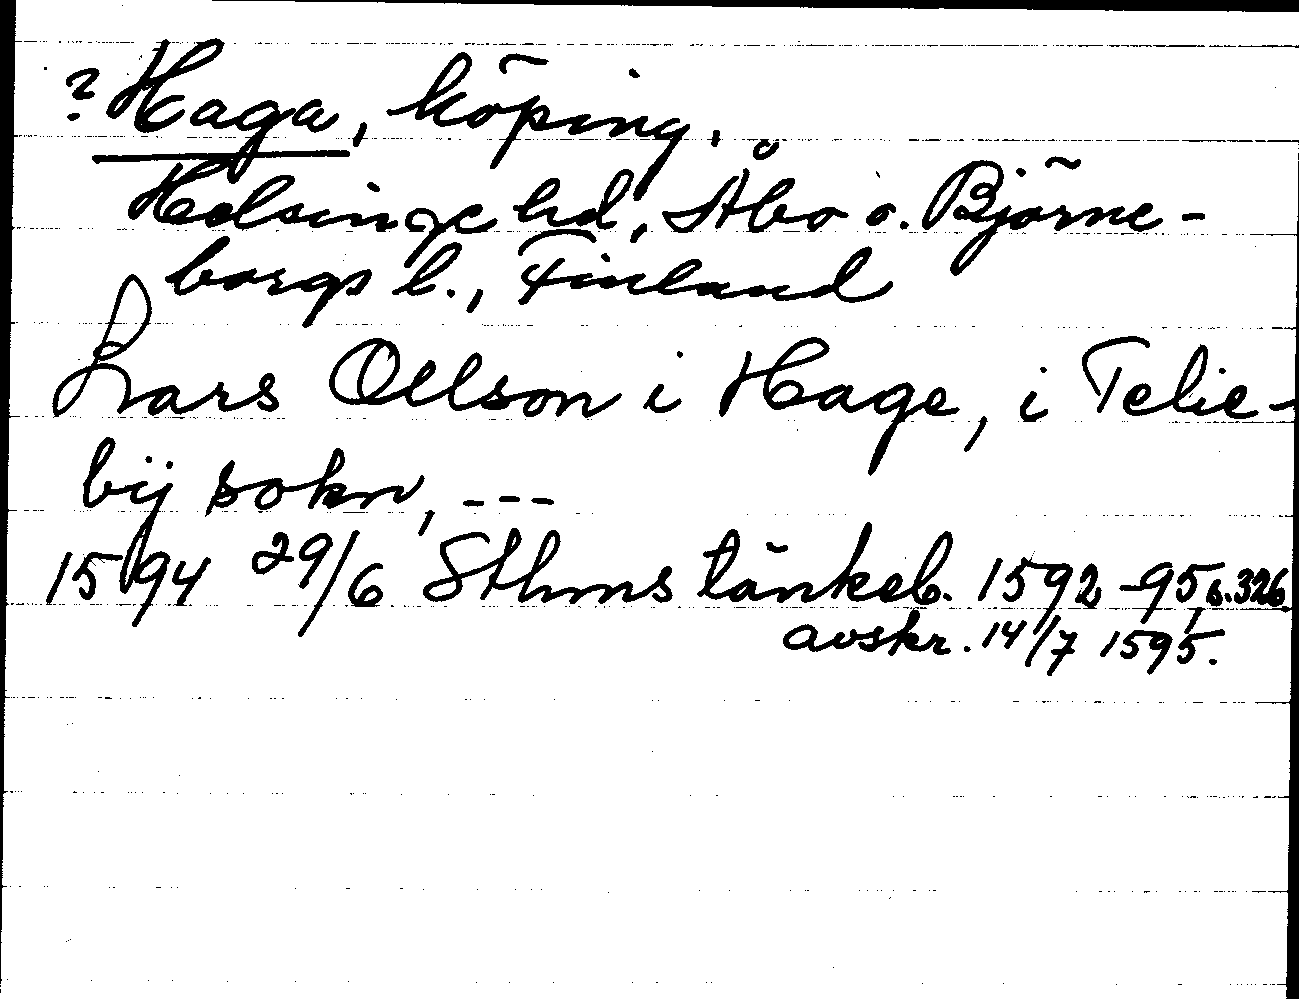 ? Haga, köping.
Helsinge hd, Åbo o. Björne-
borgs l., Finland
Lars Ollson i Hage, i Telie-
bÿ sokn, ---
1594 29/6 Sthms tänkeb. 1592-95, s. 326.
avskr. 14/7 1595.